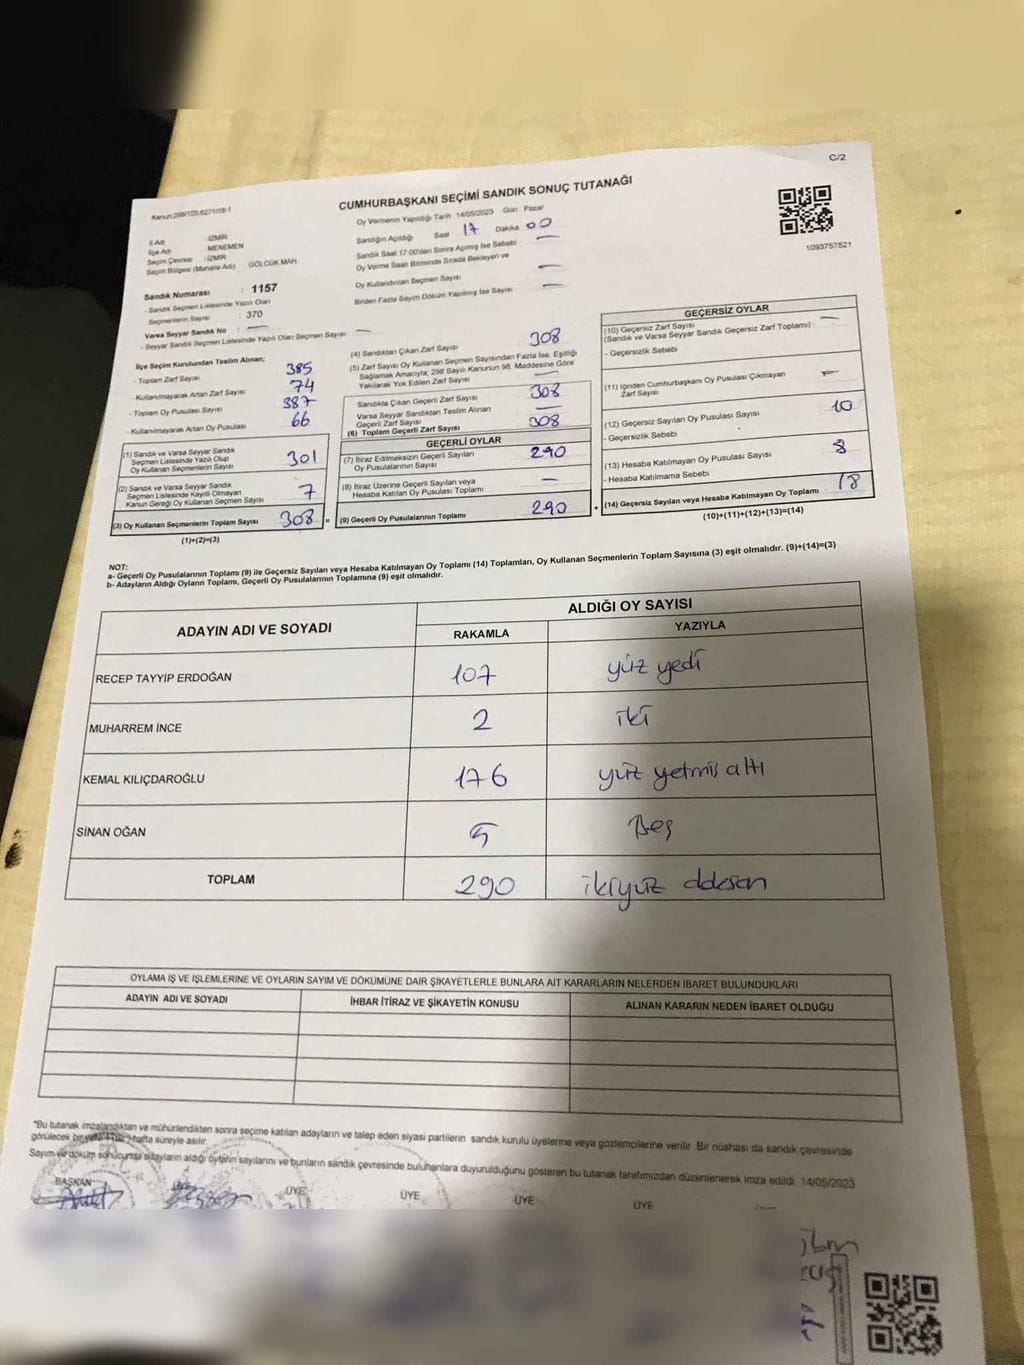 C/2
Kanun:298/105,6271/18-1
CUMHURBAŞKANI SEÇİMİ SANDIK SONUÇ TUTANAĞI
Oy Vermenin Yapıldığı Tarih :14/05/2023 Gün : Pazar
1093757521
İl Adı : İZMİR
İlçe Adı : MENEMEN
Seçim Çevresi : İZMİR
Seçim Bölgesi (Mahalle Adı) : GÖLCÜK MAH.
Sandık Numarası : 1157
- Sandık Seçmen Listesinde Yazılı Olan
Seçmenlerin Sayısı : 370
Varsa Seyyar Sandık No : —
- Seyyar Sandık Seçmen Listesinde Yazılı Olan Seçmen Sayısı: —
Sandığın Açıldığı Saat 17 Dakika 00
Sandık Saat 17:00'den Sonra Açılmış İse Sebebi —
Oy Verme Saati Bitiminde Sırada Bekleyen ve
Oy Kullandırılan Seçmen Sayısı —
Birden Fazla Sayım Döküm Yapılmış İse Sayısı —
İlçe Seçim Kurulundan Teslim Alınan;
- Toplam Zarf Sayısı 385
- Kullanılmayarak Artan Zarf Sayısı 74
- Toplam Oy Pusulası Sayısı 387
- Kullanılmayarak Artan Oy Pusulası 66
(1) Sandık ve Varsa Seyyar Sandık
Seçmen Listesinde Yazılı Olup
Oy Kullanan Seçmenlerin Sayısı 301
(2) Sandık ve Varsa Seyyar Sandık
Seçmen Listesinde Kayıtlı Olmayan
Kanun Gereği Oy Kullanan Seçmen Sayısı 7
(3) Oy Kullanan Seçmenlerin Toplam Sayısı 308 =
(1)+(2)=(3)
(4) Sandıktan Çıkan Zarf Sayısı 308
(5) Zarf Sayısı Oy Kullanan Seçmen Sayısından Fazla İse, Eşitliği
Sağlamak Amacıyla, 298 Sayılı Kanunun 98. Maddesine Göre
Yakılarak Yok Edilen Zarf Sayısı —
Sandıkta Çıkan Geçerli Zarf Sayısı 308
Varsa Seyyar Sandıktan Teslim Alınan
Geçerli Zarf Sayısı —
(6) Toplam Geçerli Zarf Sayısı 308
GEÇERLİ OYLAR
(7) İtiraz Edilmeksizin Geçerli Sayılan
Oy Pusulalarının Sayısı 290
(8) İtiraz Üzerine Geçerli Sayılan veya
Hesaba Katılan Oy Pusulası Toplamı —
(9) Geçerli Oy Pusulalarının Toplamı 290 +
GEÇERSİZ OYLAR
(10) Geçersiz Zarf Sayısı
(Sandık ve Varsa Seyyar Sandık Geçersiz Zarf Toplamı) —
- Geçersizlik Sebebi
(11) İçinden Cumhurbaşkanı Oy Pusulası Çıkmayan
Zarf Sayısı —
(12) Geçersiz Sayılan Oy Pusulası Sayısı 10
- Geçersizlik Sebebi
(13) Hesaba Katılmayan Oy Pusulası Sayısı 8
- Hesaba Katılmama Sebebi
(14) Geçersiz Sayılan veya Hesaba Katılmayan Oy Toplamı 18
(10)+(11)+(12)+(13)=(14)
NOT:
a- Geçerli Oy Pusulalarının Toplamı (9) ile Geçersiz Sayılan veya Hesaba Katılmayan Oy Toplamı (14) Toplamları, Oy Kullanan Seçmenlerin Toplam Sayısına (3) eşit olmalıdır. (9)+(14)=(3)
b- Adayların Aldığı Oyların Toplamı, Geçerli Oy Pusulalarının Toplamına (9) eşit olmalıdır.
ADAYIN ADI VE SOYADI
ALDIĞI OY SAYISI
RAKAMLA YAZIYLA
RECEP TAYYİP ERDOĞAN 107 yüz yedi
MUHARREM İNCE 2 iki
KEMAL KILIÇDAROĞLU 176 yüz yetmiş altı
SİNAN OĞAN 5 Beş
TOPLAM 290 ikiyüz doksan
OYLAMA İŞ VE İŞLEMLERİNE VE OYLARIN SAYIM VE DÖKÜMÜNE DAİR ŞİKAYETLERLE BUNLARA AİT KARARLARIN NELERDEN İBARET BULUNDUKLARI
ADAYIN ADI VE SOYADI İHBAR İTİRAZ VE ŞİKAYETİN KONUSU ALINAN KARARIN NEDEN İBARET OLDUĞU
*Bu tutanak imzalandıktan ve mühürlendikten sonra seçime katılan adayların ve talep eden siyasi partilerin sandık kurulu üyelerine veya gözlemcilerine verilir. Bir nüshası da sandık çevresinde
görülecek bir yere hafta süreyle asılır.
Sayım ve döküm sonucunda adayların aldığı oyların sayılarını ve bunların sandık çevresinde bulunanlara duyurulduğunu gösteren bu tutanak tarafımızdan düzenlenerek imza edildi. 14/05/2023
BAŞKAN ÜYE ÜYE ÜYE ÜYE ÜYE